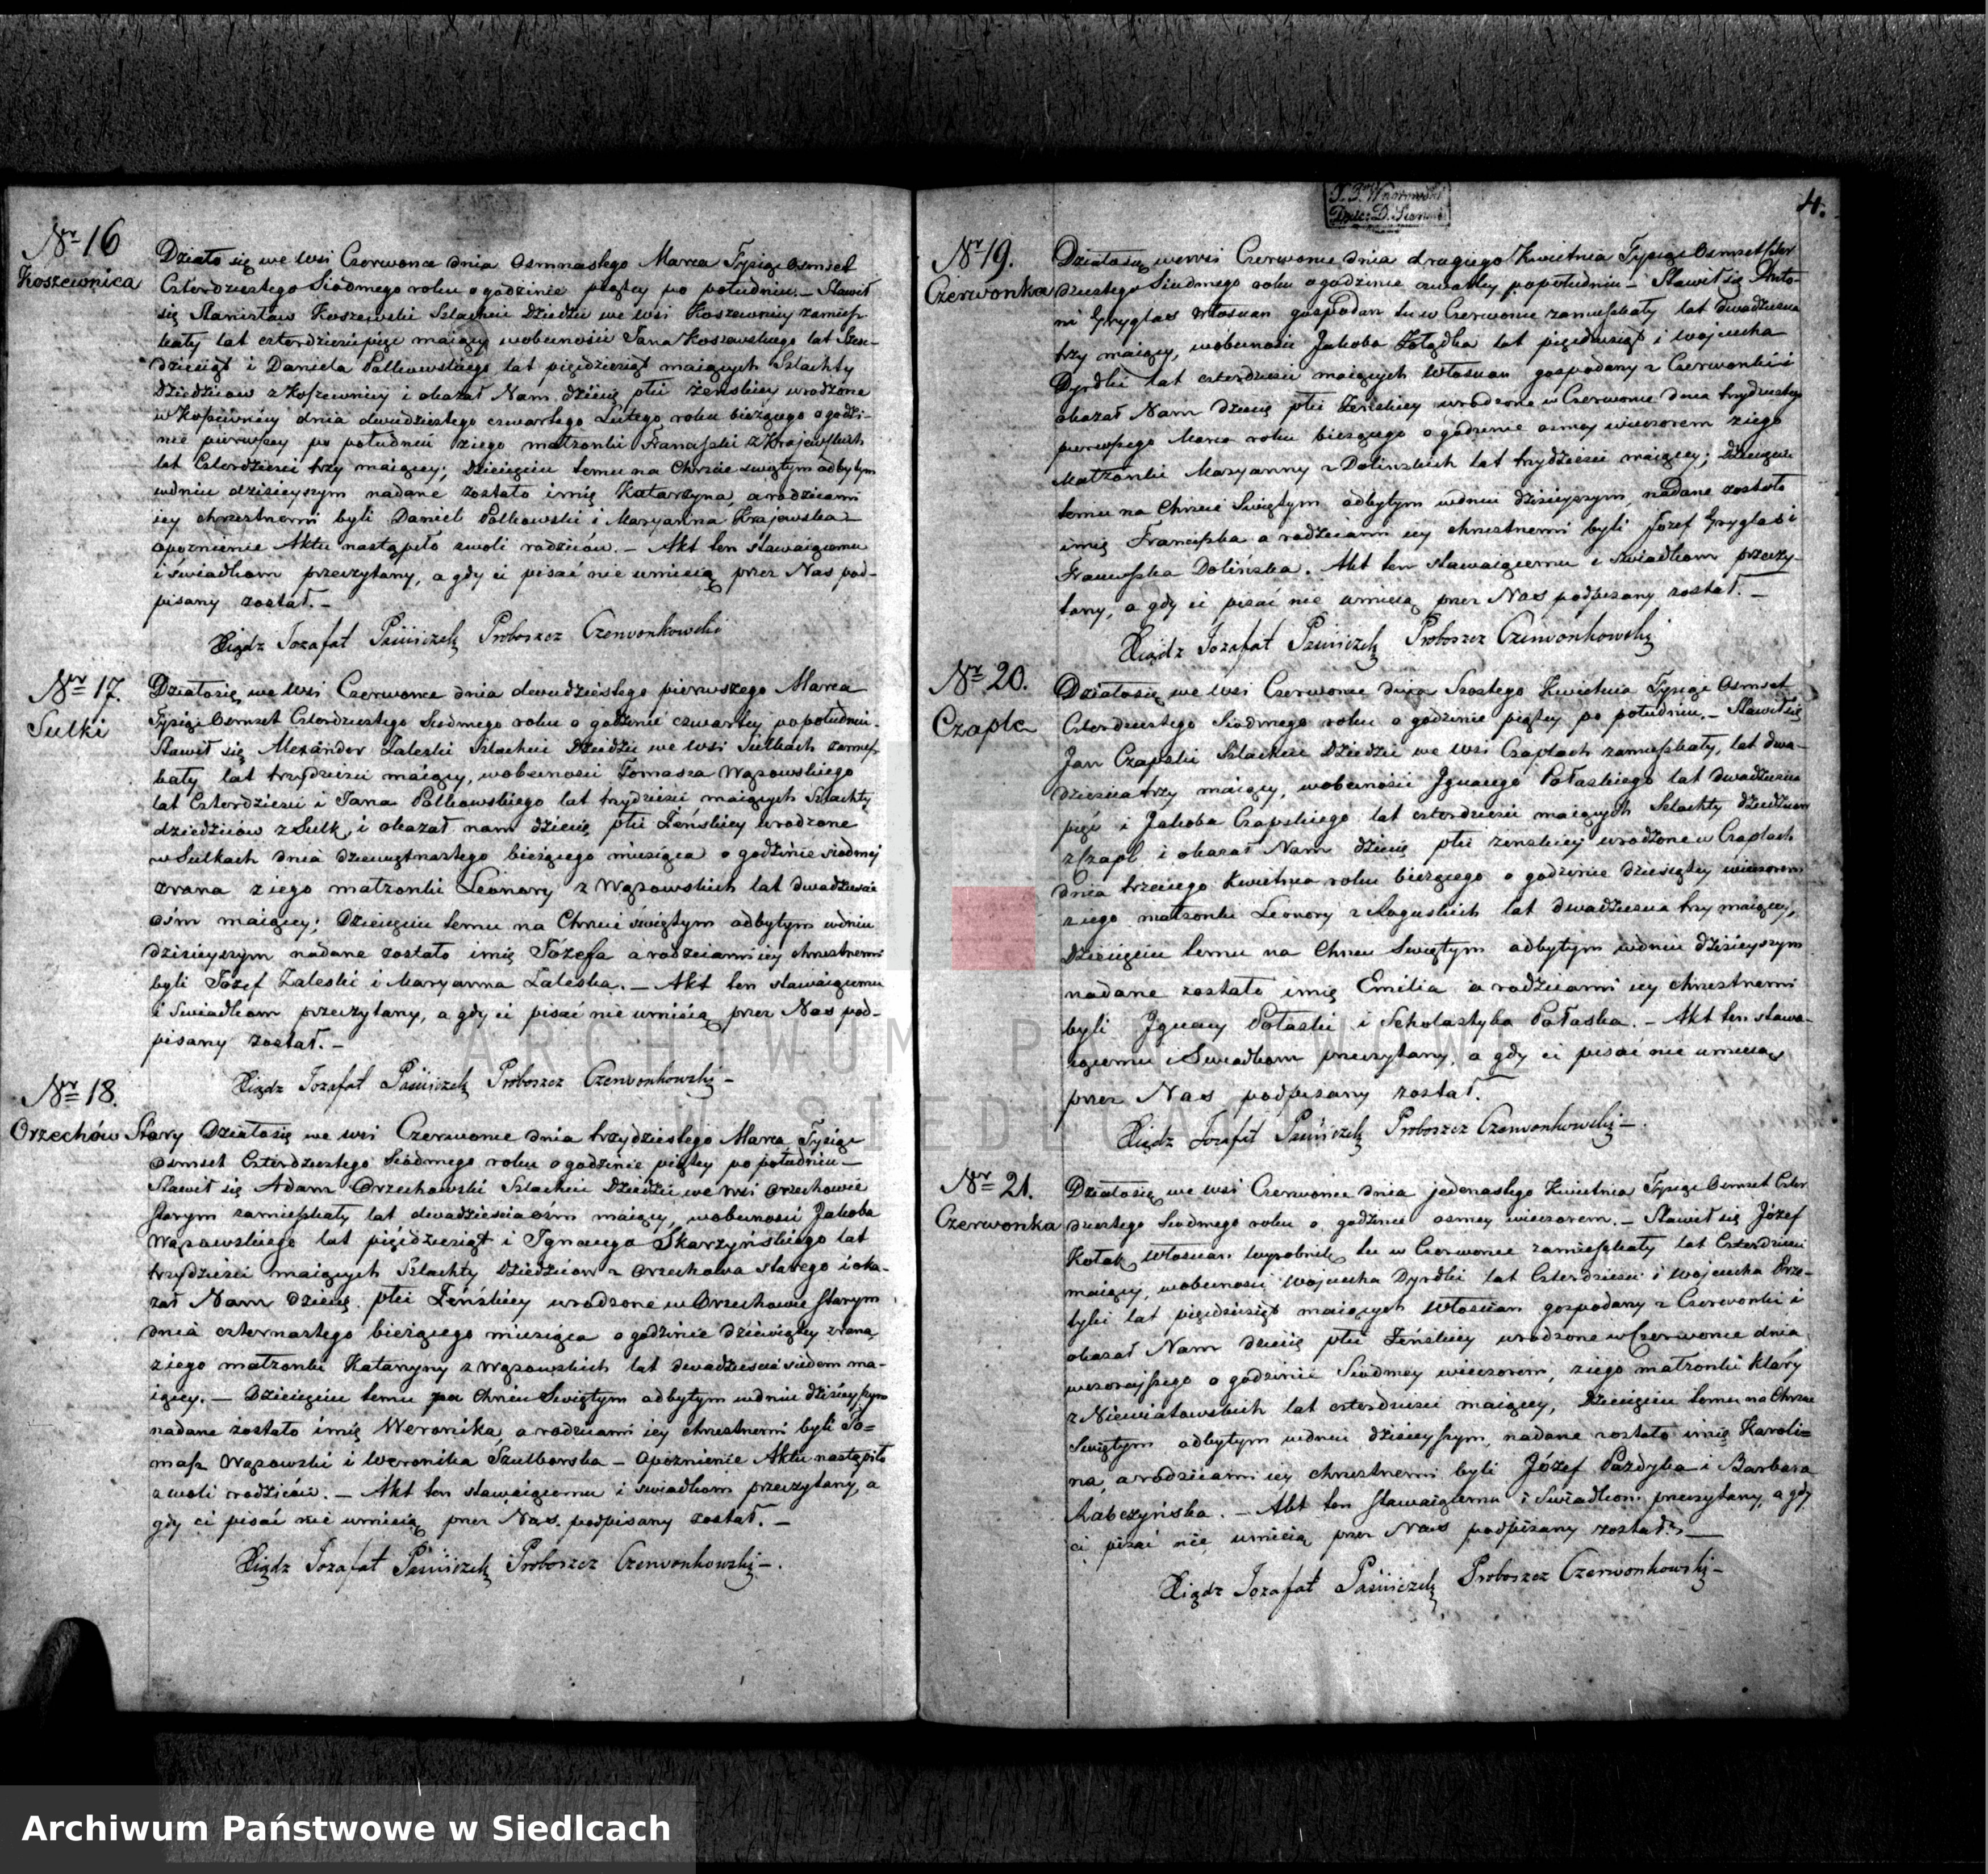 Nr 16
Koszewnica
Działo się we wsi Czerwonce dnia Osmnastego Marca Tysiąc Osmset
Czterdziestego Siódmego roku o godzinie piątey po południu. – Stawił
się Stanisław Koszewski Szlachcic Dziedzic we wsi Koszewnicy zamiesz
kały lat czterdzieści pięć maiący w obecności Jana Koszewskiego lat sześ-
dziesiąt i Daniela Polkowskiego lat pięćdziesiąt maiących Szlachty
Dziedziców z Koszewnicy i okazał Nam dziecię płci żeńskiey urodzone
w Koszewnicy dnia dwudziestego czwartego Lutego roku bieżącego o godzi-
nie pierwszey po południu z iego małżonki Franciszki z Krajewskich
lat Czterdzieści trzy maiącey; Dziecięciu temu na Chrzcie świętym odbytym
w dniu dzisieyszym nadane zostało imię Katarzyna, a rodzicami
iey chrzestnemi byli Daniel Polkowski i Maryanna Krajewska –
Opóznienie Aktu nastąpiło zwoli rodziców. – Akt ten stawaiącemu
i świadkom przeczytany, a gdy ci pisać nie umieią przez Nas pod-
pisany został. –
Xiądz Jozafat Proboszcz Czerwonkowski
Nr 17.
Sulki
Działo się we wsi Czerwonce dnia dwudziestego pierwszego Marca
Tysiąc Osmset Czterdziestego Siedmego roku o godzinie czwartey po południu.
Stawił się Alexander Zaleski Szlachcic Dziedzic we wsi Sulkach zamiesz
kały, lat trzydzieści maiący, w obecności Tomasza Wąsowskiego
lat Czterdzieści i Jana Polkowskiego lat trzydzieści maiących Szlachty
dziedziców z Sulk, i okazał nam dziecię płci Żeńskiey urodzone
w Sulkach dnia dziewiętnastego bieżącego miesiąca o godzinie siódmej
zrana z iego małżonki Leonory z Wąsowskich lat dwadzieścia
ośm maiącey; Dziecięciu temu na Chrzcie świętym odbytym w dniu
dzisieyszym nadane zostało imię Józefa a rodzicami iey chrzestnemi
byli Józef Zaleski i Maryanna Zaleska. – Akt ten stawaiącemu
i Świadkom przeczytany, a gdy ci pisać nie umieią przez Nas pod-
pisany został. –
Xiądz Jozafat Proboszcz Czerwonkowski –
Nr 18.
Orzechów Stary Działo się we wsi Czerwonce dnia trzydziestego Marca Tysiąc
Osmset Czterdziestego Siódmego roku o godzinie piątey po południu –
Stawił się Adam Orzechowski Szlachcic Dziedzic we wsi Orzechowie
starym zamieszkały lat dwadzieścia ośm maiący, w obecności Jakóba
Wąsowskiego lat pięćdziesiąt i Ignacego Skarzyńskiego lat
trzydzieści maiących Szlachty Dziedziców z Orzechowa starego i oka-
zał Nam dziecię płci Żeńskiey urodzone w Orzechowie starym
dnia czternastego bieżącego miesiąca o godzinie dziewiątey zrana,
z iego małżonki Katarzyny z Wąsowskich lat dwadzieścia siedem ma-
iącey. – Dziecięciu temu na Chrzcie Świętym odbytym w dniu dzisieyszym
nadane zostało imię Weronika, a rodzicami iey chrzestnemi byli To=
masz Wąsowski i Weronika Szulborska – Opóznienie Aktu nastąpiło
z woli rodziców. – Akt ten stawaiącemu i świadkom przeczytany, a
gdy ci pisać nie umieią przez Nas podpisany został. –
Xiądz Jozafat Proboszcz Czerwonkowski –.
4.
Nr 19.
Czerwonka
Działo się we wsi Czerwonce dnia drugiego Kwietnia Tysiąc Osmset Czter
dziestego Siódmego roku o godzinie czwartey po południu – Stawił się Anto-
ni Gryglas Włościan gospodarz tu w Czerwonce zamieszkały lat dwadzieścia
trzy maiący, w obecności Jakóba Żołądka lat pięćdziesiąt i Wojciecha
Dyrdki lat czterdzieści maiących Włościan gospodarzy z Czerwonki i
okazał Nam dziecię płci Żeńskiey urodzone w Czerwonce dnia trzydziestego
pierwszego Marca roku bieżącego o godzinie osmey wieczorem z iego
Małżonki Maryanny z Dolinskich lat trzydzieści maiącey; Dziecięciu
temu na Chrzcie Świętym odbytym w dniu dzisieyszym, nadane zostało
imię Franciszka a rodzicami iey chrzestnemi byli Józef Gryglas i
Franciszka Dolińska. Akt ten stawaiącemu i świadkom przeczy-
tany, a gdy ci pisać nie umieią przez Nas podpisany został. –
Xiądz Jozafat Proboszcz Czerwonkowski
Nr 20.
Czaple
Działo się we wsi Czerwonce dnia Szostego Kwietnia Tysiąc Osmset
Czterdziestego Siódmego roku o godzinie piątey po południu. – Stawił się
Jan Czapski Szlachcic Dziedzic we wsi Czaplach zamieszkały, lat dwa-
dzieścia trzy maiący, w obecności Ignacego Połaskiego lat dwadzieścia
pięć i Jakóba Czapskiego lat czterdzieści maiących Szlachty dziedziców
z Czapl i okazał Nam dziecię płci zenskiey urodzone w Czaplach
dnia trzeciego Kwietnia roku bieżącego o godzinie dziesiątey wieczorem
z iego małżonki Leonory z Roguskich lat dwadzieścia trzy maiącey,
Dziecięciu temu na Chrzcie Świętym odbytym w dniu dzisieyszym
nadane zostało imię Emilia a rodzicami iey chrzestnemi
byli Ignacy Połaski i Scholastyka Połaska. – Akt ten stawa-
iącemu i Świadkom przeczytany, a gdy ci pisać nie umieią,
przez Nas podpisany został.
Xiądz Jozafat Proboszcz Czerwonkowski –.
Nr 21.
Czerwonka
Działo się we wsi Czerwonce dnia jedenastego Kwietnia Tysiąc Osmset Czter
dziestego Siódmego roku o godzinie osmey wieczorem. – Stawił się Józef
Kołak Włościan Wyrobnik tu w Czerwonce zamieszkały lat Czterdzieści
maiący, w obecności Wojciecha Dyrdki lat Czterdzieści i Wojciecha
lat pięćdziesiąt maiących Włościan gospodarzy z Czerwonki i
okazał Nam dziecię płci Żeńskiey urodzone w Czerwonce dnia
wczorajszego o godzinie Siódmey wieczorem, z iego małżonki Klary
z Niewiatowskich lat czterdzieści maiącey, Dziecięciu temu na Chrzcie
Świętym odbytym w dniu dzisieyszym, nadane zostało imię Karoli=
na, a rodzicami iey chrzestnemi byli Józef Pazdyka i Barbara
Rabczyńska. – Akt ten stawaiącemu i Świadkom przeczytany, a gdy
ci pisać nie umieią przez Nas podpisany został. –
Xiądz Jozafat Proboszcz Czerwonkowski –
ARCHIWUM PAŃSTWOWE
W SIEDLCACH
Archiwum Państwowe w Siedlcach